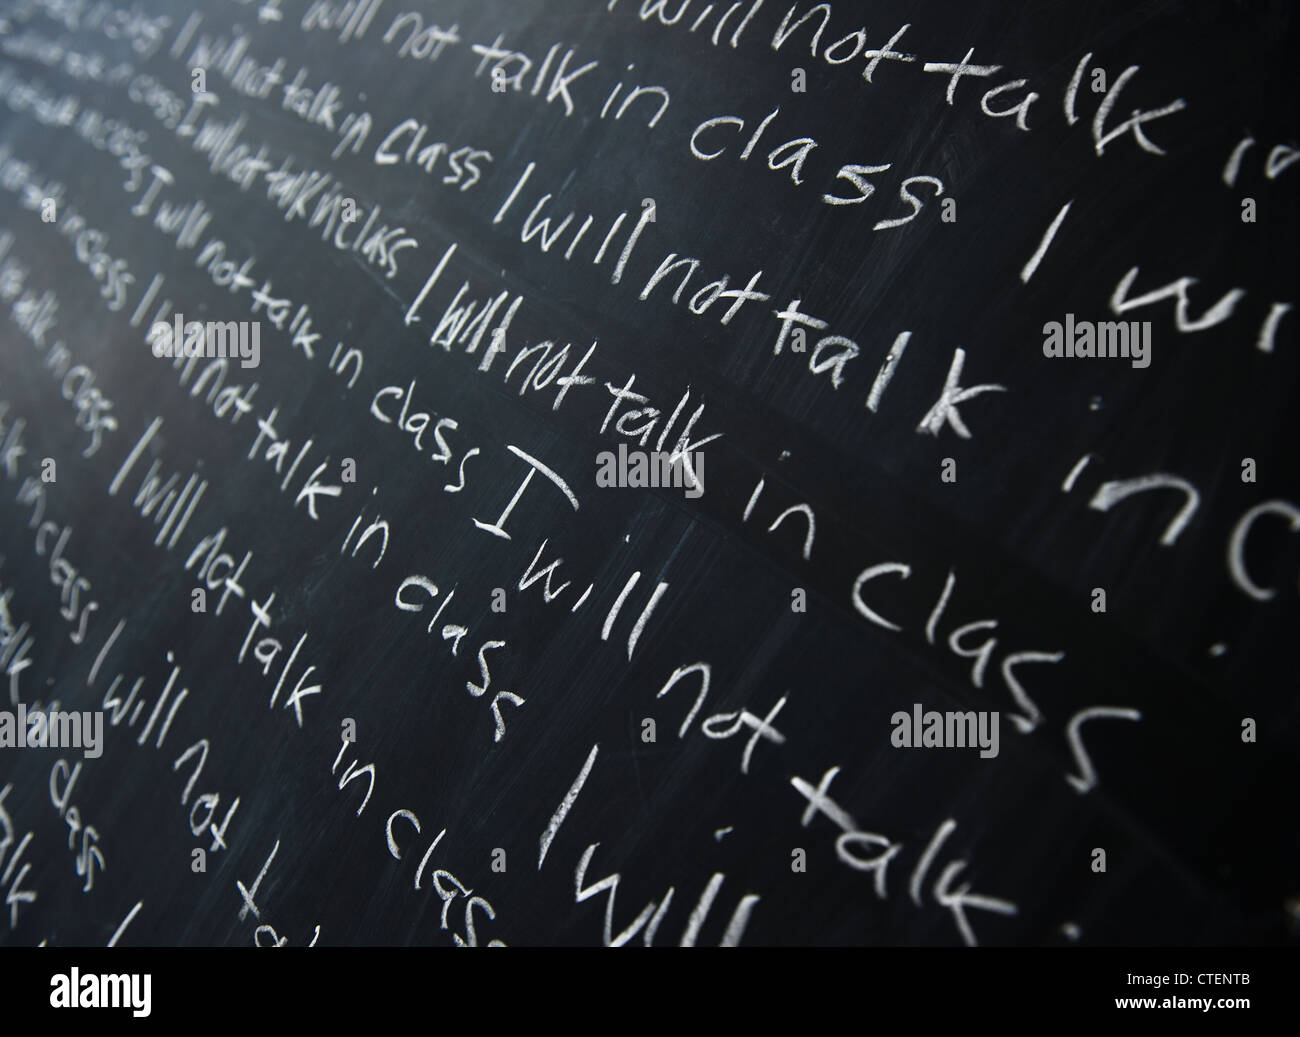 I will not talk in
I will not talk in class I wi
I will not talk in class I will not talk in c
in class I will not talk in class I will not talk in class
in class I will not talk in class I will not talk
in class I will not talk in class I will
talk in class I will not talk in class
in class I will not ta
talk in class I
talk
alamy
alamy
alamy
alamy
alamy
alamy
alamy
Image ID: CTENTB
www.alamy.com